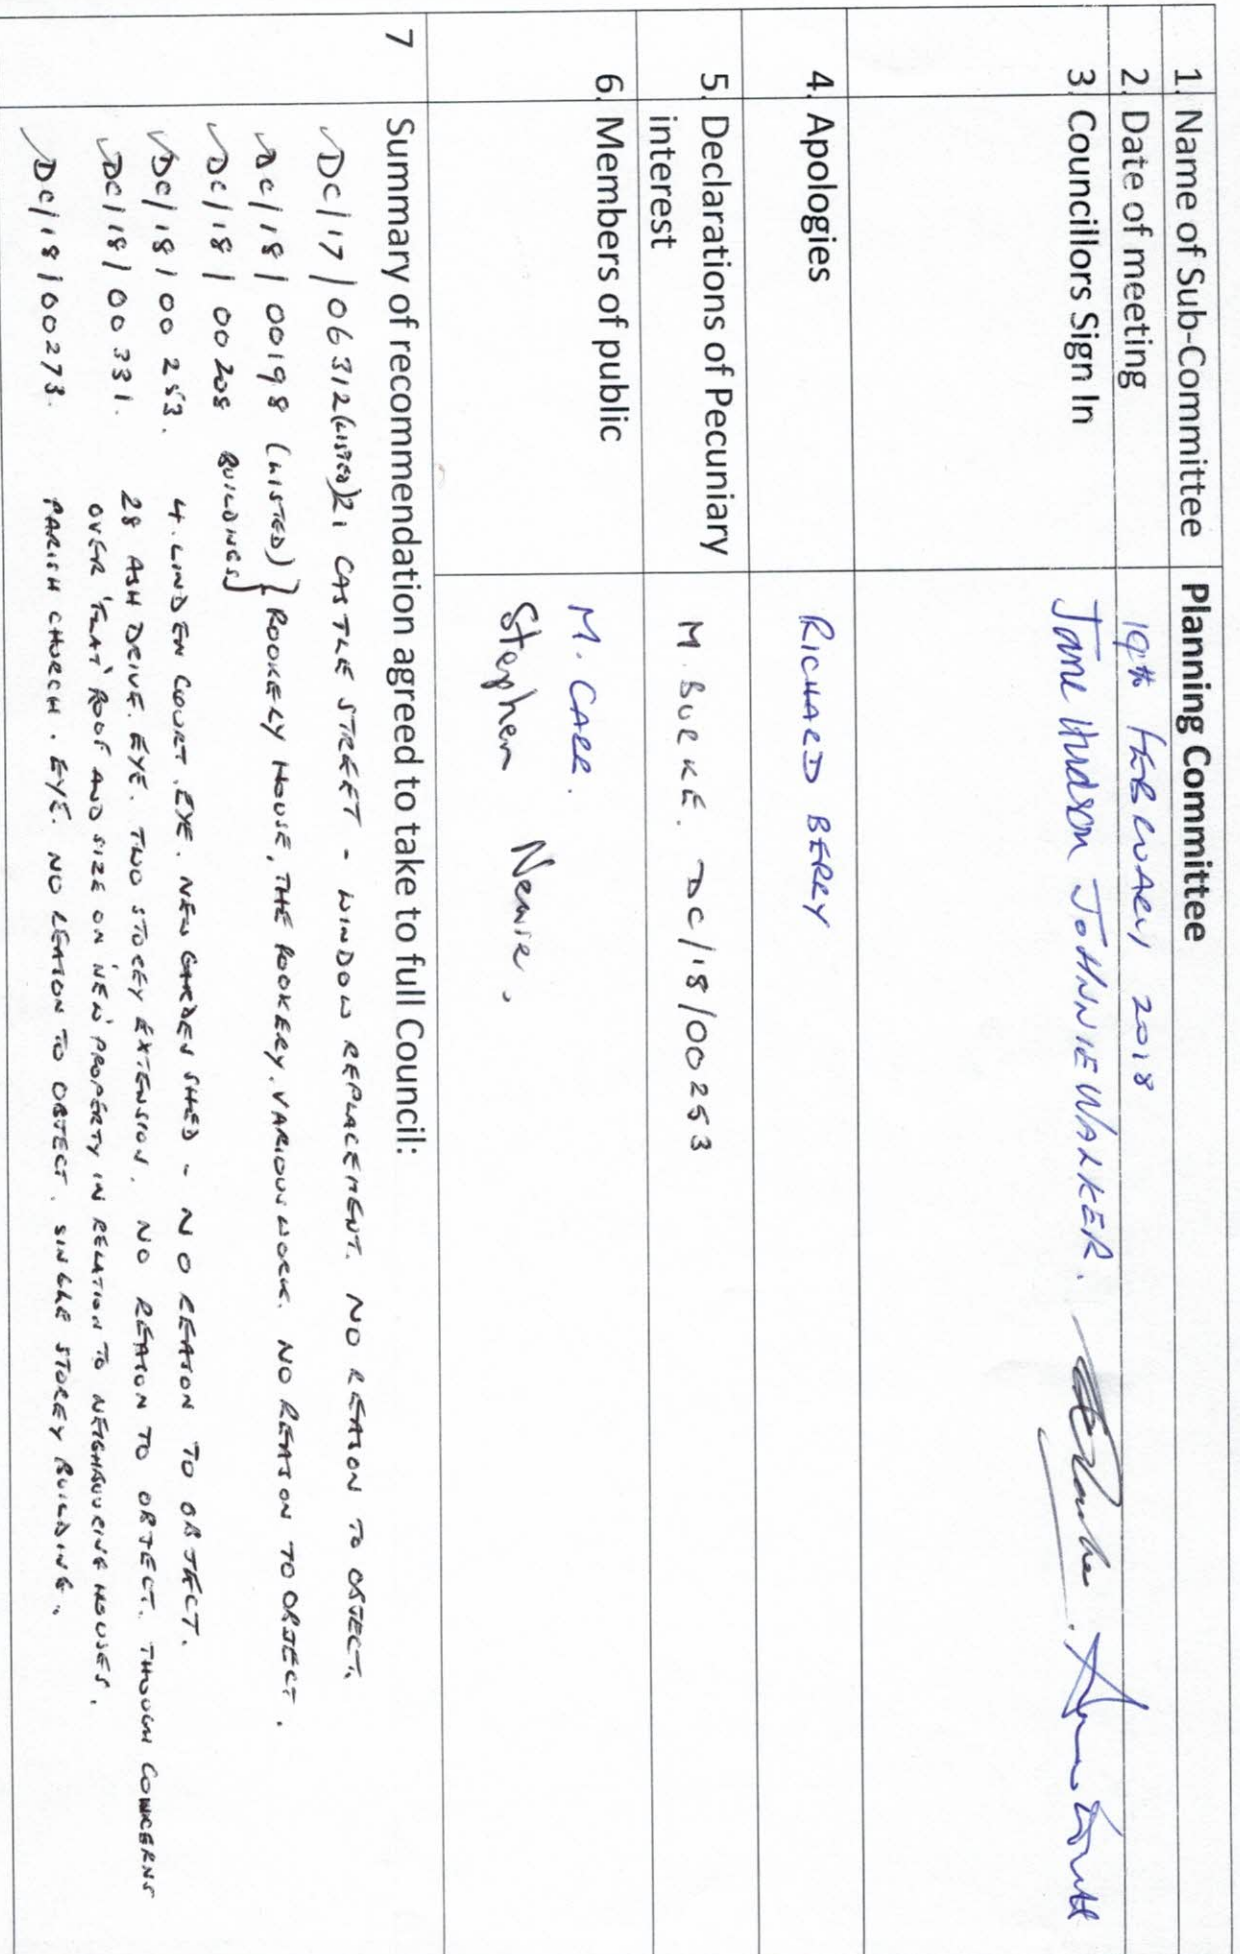 1. Name of Sub-Committee Planning Committee
2. Date of meeting 19th FEBRUARY 2018
3 Councillors Sign In Jane Hudson JOHNNIE WALKER.
4. Apologies RICHARD BERRY
5. Declarations of Pecuniary M. BURKE. DC/18/00253
interest
6. Members of public M. CARR.
Stephen
7 Summary of recommendation agreed to take to full Council:
DC/17/06312 (LISTED) 21 CASTLE STREET - WINDOW REPLACEMENT. NO REASON TO OBJECT.
DC/18/00198 (LISTED) } ROOKELY HOUSE, THE ROOKERY. VARIOUS WORK. NO REASON TO OBJECT.
DC/18/00208 BUILDINGS
DC/18/00253. 4. LINDEN COURT. EYE. NEW GARDEN SHED - NO REASON TO OBJECT.
DC/18/00331. 28 ASH DRIVE. EYE. TWO STOREY EXTENSION. NO REASON TO OBJECT. THOUGH CONCERNS
OVER 'FLAT' ROOF AND SIZE ON 'NEW' PROPERTY IN RELATION TO NEIGHBOURING HOUSES.
DC/18/00273. PARISH CHURCH. EYE. NO REASON TO OBJECT. SINGLE STOREY BUILDING.